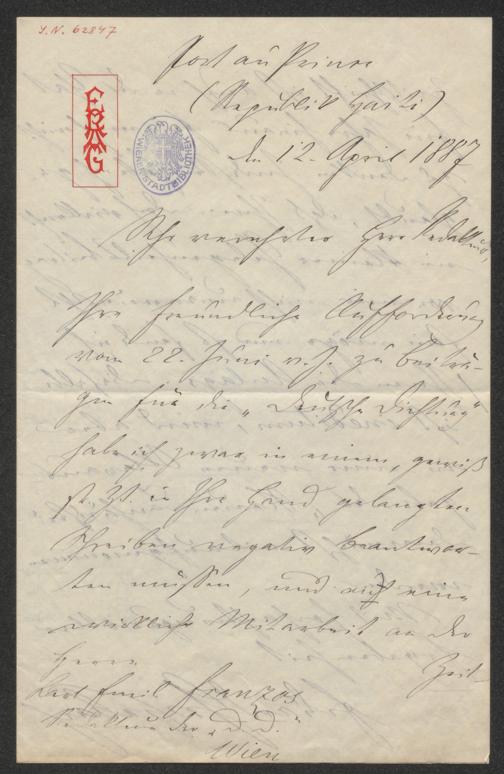 J.N. 62847
Port au Prince
(Republik Haiti)
den 12. April 1887
EBAMG
WIENER STADTBIBLIOTHEK
Sehr verehrter Herr Redakteur,
Ihre freundliche Aufforderung
vom 22. Juni v. J. zu Beiträ-
gen für die „Deutsche Dichtung"
habe ich zwar in einem, gewiß
jetzt in Ihre Hand gelangten
Schreiben negativ beantwor-
ten müssen, und auf eine
wirkliche Mitarbeit an der
Zeit-
Herrn
Karl Emil Franzos
Redakteur der „D. D."
Wien